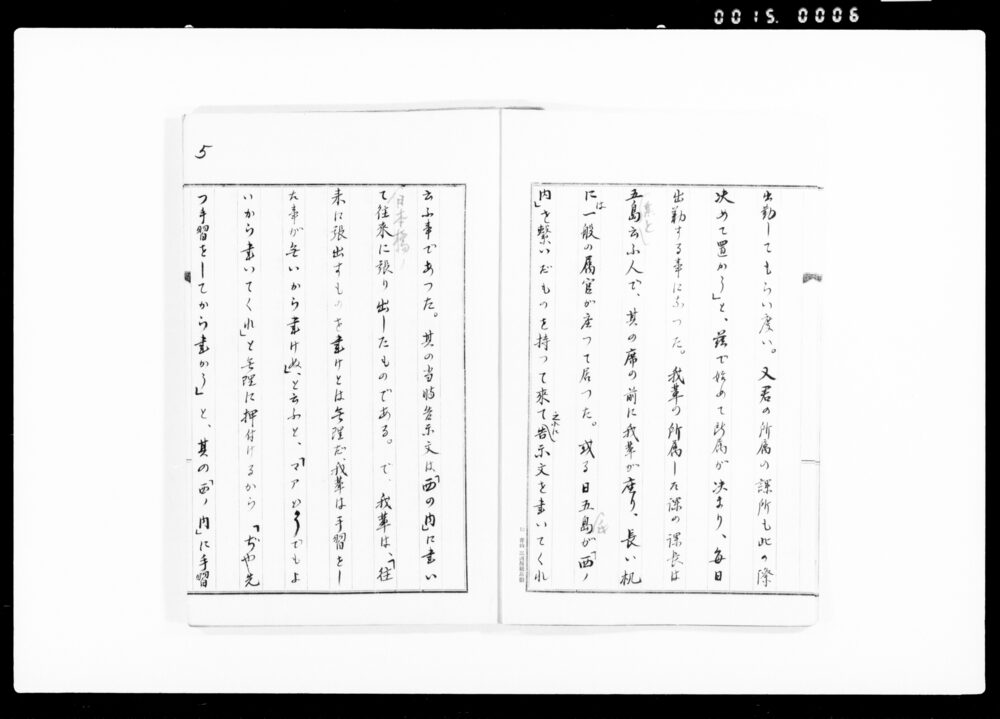 0015. 0006
出勤してもらい度い。又君の所属の課所も此の際
決めて置かう」と、茲で始めて所属が決まり、毎日
出勤する事になつた。我輩の所属した課の課長は
五島と云ふ人で、其の席の前に我輩が座り、長い机
には一般の属官が座つて居つた。或る日五島が「西ノ
内」を繋いだものを持つて来て「之れに告示文を書いてくれ
5
云ふ事であつた。其の当時告示文は「西の内」に書い
て往来に張り出したものである。で、我輩は、「往
日本橋ノ
来に張出すものを書けとは無理だ、我輩は手習をし
た事が無いから書けぬ」と云ふと、「マアどうでもよ
いから書いてくれ」と無理に押付けるから「ぢや先
づ手習をしてから書かう」と、其の「西ノ内」に手習